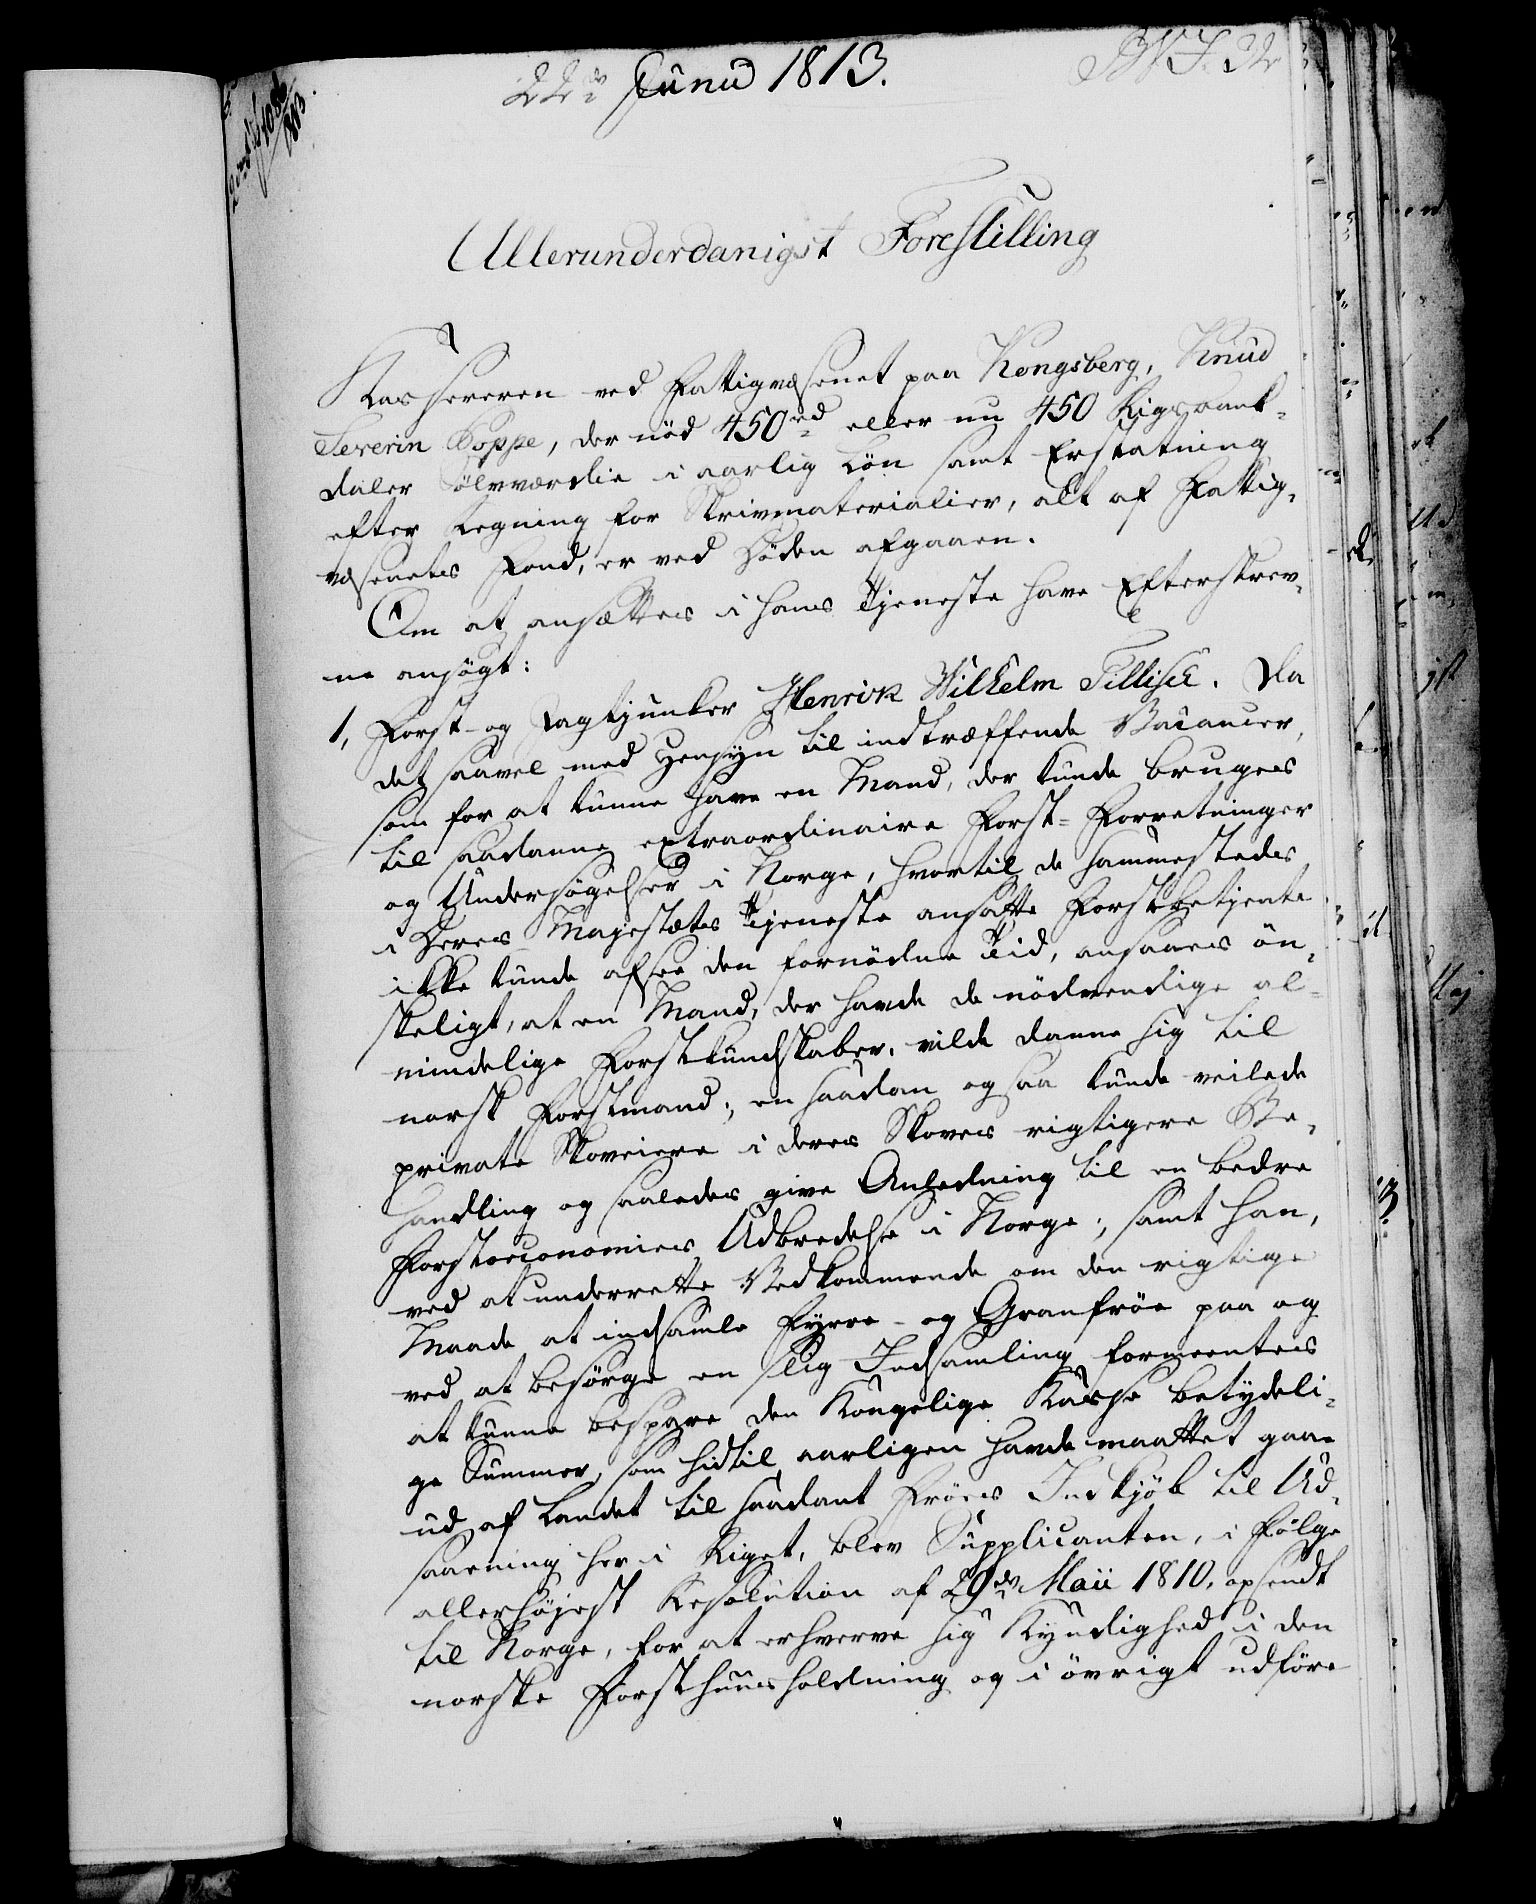 22de Junii 1813.
Allerunderdanigst Forestilling
Kassereren ved Fattigvæsenet paa Kongsberg, Knud
Severin Poppe, der nöd 450rd eller nu 450 Rigsbank-
daler Sölvværdie i aarlig Lön samt Erstatning
efter Regning for Skrivmaterialier, alt af Fattig-
væsenets Fond, er ved Döden afgaaen.
Om at ansættes i hans Tjeneste have Efterskrev-
ne ansögt:
1, Forst- og Jagtjunker Henrik Wilhelm Tillisch. Da
det saavel med Hensyn til indtræffende Vacancer,
som for at kunne have en Mand, der kunde bruges
til saadanne extraordinaire Forst-Forretninger
og Undersögelser i Norge, hvortil de sammesteds
i Deres Majestæts Tjeneste ansatte Forstbetjente
ikke kunde afsee den fornödne Tid, ansaaes ön-
skeligt, at en Mand, der havde de nödvendige al-
mindelige Forstkundskaber, vilde danne sig til
norsk Forstmand; en saadan ogsaa kunde veilede
private Skoveiere i deres Skoves rigtigere Be-
handling og saaledes give Anledning til en bedre
Forstoeconomies Udbredelse i Norge; samt han,
ved at underrette Vedkommende om den rigtige
Maade at indsamle Fyrre- og Granfröe paa og
ved at besörge en slig Indsamling formeentes
at kunne bespare den Kongelige Kasse betydeli-
ge Summer, som hidtil aarligen havde maattet gaae
ud af Landet til saadant Fröes Indkjöb til Ud-
saaening her i Riget, blev Supplicanten, i Fölge
allerhöjest Resolution af 29de Maii 1810, opsendt
til Norge, for at erhverve sig Kyndighed i den
norske Forsthuusholdning og i övrigt udföre